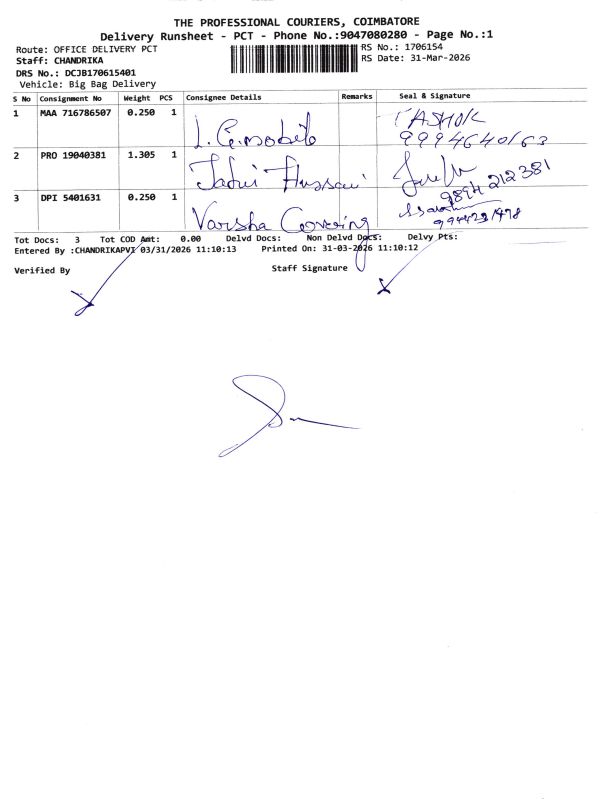 THE PROFESSIONAL COURIERS, COIMBATORE
Delivery Runsheet - PCT - Phone No.:9047080280 - Page No.:1
Route: OFFICE DELIVERY PCT
RS No.: 1706154
Staff: CHANDRIKA
RS Date: 31-Mar-2026
DRS No.: DCJB170615401
Vehicle: Big Bag Delivery
S No Consignment No Weight PCS Consignee Details Remarks Seal & Signature
1 MAA 716786507 0.250 1 ASHOK
9994640163
2 PRO 19040381 1.305 1
9894 212381
3 DPI 5401631 0.250 1 Varsha Covering
Tot Docs: 3 Tot COD Amt: 0.00 Delvd Docs: Non Delvd Docs: Delvy Pts:
Entered By :CHANDRIKAPVT 03/31/2026 11:10:13 Printed On: 31-03-2026 11:10:12
Verified By Staff Signature